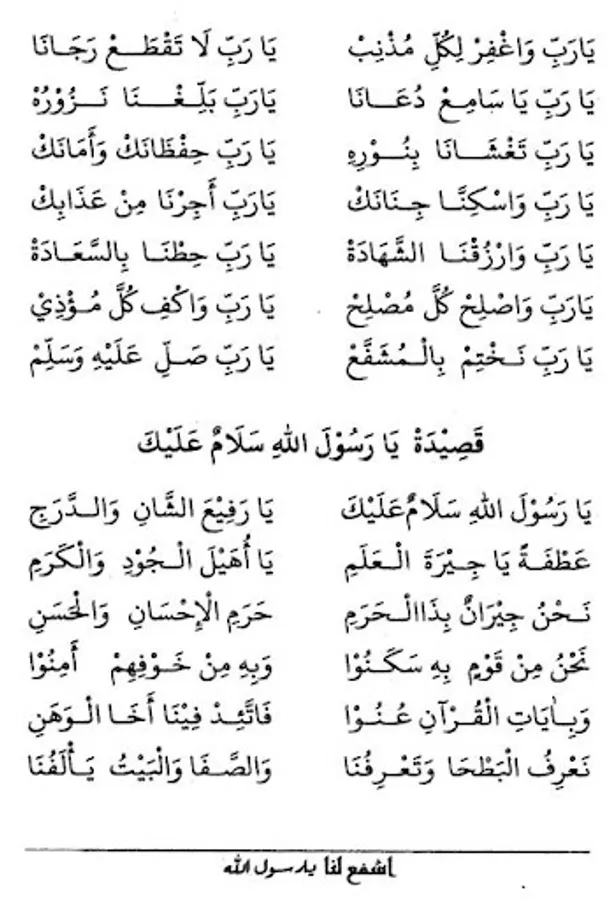 يَارَبِّ وَاغْفِرْ لِكُلِّ مُذْنِبْ يَا رَبِّ لَا تَقْطَعْ رَجَانَا
يَا رَبِّ يَا سَامِعْ دُعَانَا يَارَبِّ بَلِّغْنَا نَزُوْرُهْ
يَا رَبِّ تَغْشَانَا بِنُوْرِهِ يَا رَبِّ حِفْظَانَكْ وَأَمَانَكْ
يَا رَبِّ وَاسْكِنَّا جِنَانَكْ يَارَبِّ أَجِرْنَا مِنْ عَذَابِكْ
يَا رَبِّ وَارْزُقْنَا الشَّهَادَةْ يَا رَبِّ حِطْنَا بِالسَّعَادَةْ
يَارَبِّ وَاصْلِحْ كُلَّ مُصْلِحْ يَا رَبِّ وَاكْفِ كُلَّ مُؤْذِيْ
يَا رَبِّ نَخْتِمْ بِالْمُشَفَّعْ يَا رَبِّ صَلِّ عَلَيْهِ وَسَلِّمْ
قَصِيْدَةْ يَا رَسُوْلَ اللهِ سَلَامٌ عَلَيْكَ
يَا رَسُوْلَ اللهِ سَلَامٌ عَلَيْكَ يَا رَفِيْعَ الشَّانِ وَالدَّرَجِ
عَطْفَةً يَا جِيْرَةَ الْعَلَمِ يَا أُهَيْلَ الْجُوْدِ وَالْكَرَمِ
نَحْنُ جِيْرَانٌ بِذَاالْحَرَمِ حَرَمِ الْإِحْسَانِ وَالْحَسَنِ
نَحْنُ مِنْ قَوْمٍ بِهِ سَكَنُوْا وَبِهِ مِنْ خَوْفِهِمْ أَمِنُوْا
وَبِاٰيَاتِ الْقُرْآنِ عُنُوْا فَاتَّئِدْ فِيْنَا أَخَا الْوَهَنِ
نَعْرِفُ الْبَطْحَا وَتَعْرِفُنَا وَالصَّفَا وَالْبَيْتُ يَأْلَفُنَا
اشفع لنا يا رسول الله